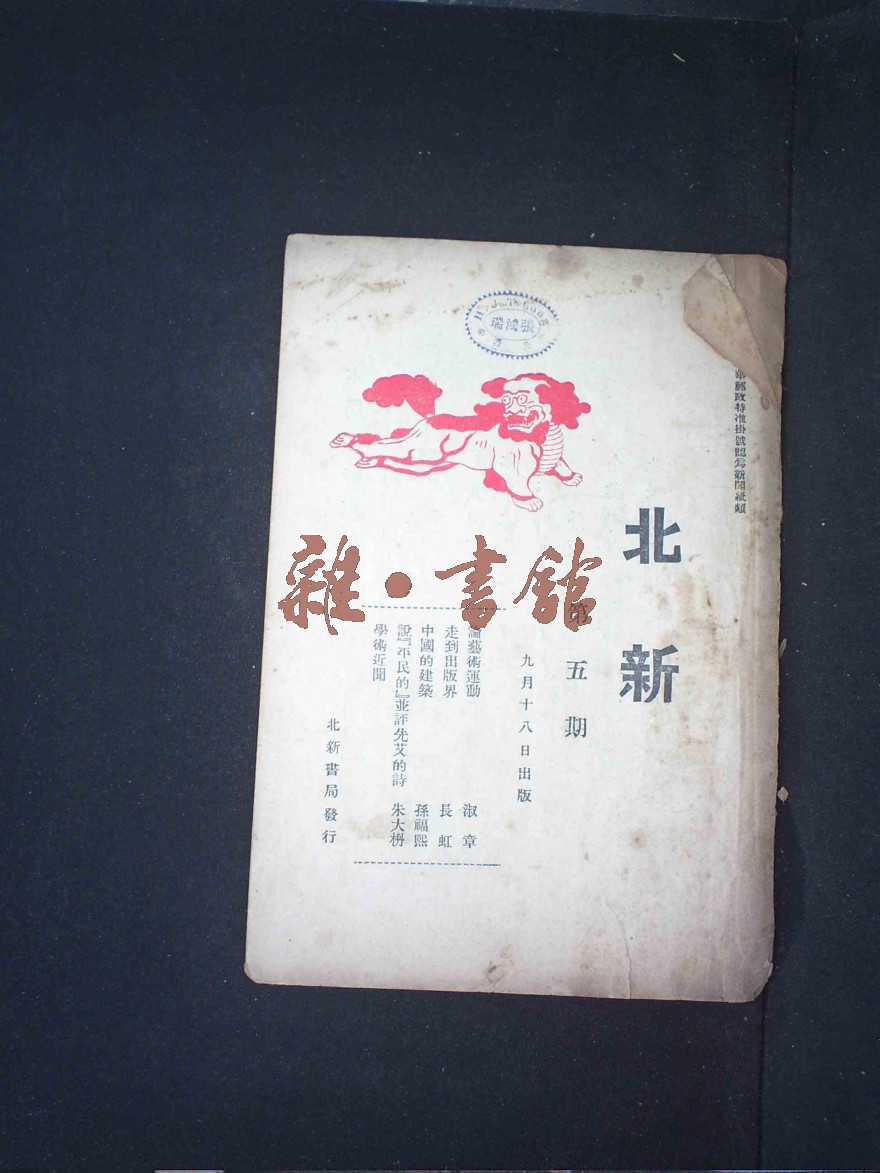 華郵政特准掛號認爲新聞紙類
北新
第五期
九月十八日出版
論藝術運動 淑章
走到出版界 長虹
中國的建築 孫福熙
說『平民的』並評先艾的詩 朱大枬
學術近聞
北新書局發行
張鴻瑞
雜·書館